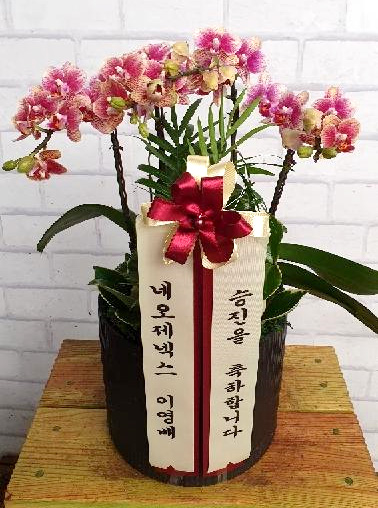 네오제넥스 이영배
승진을 축하합니다